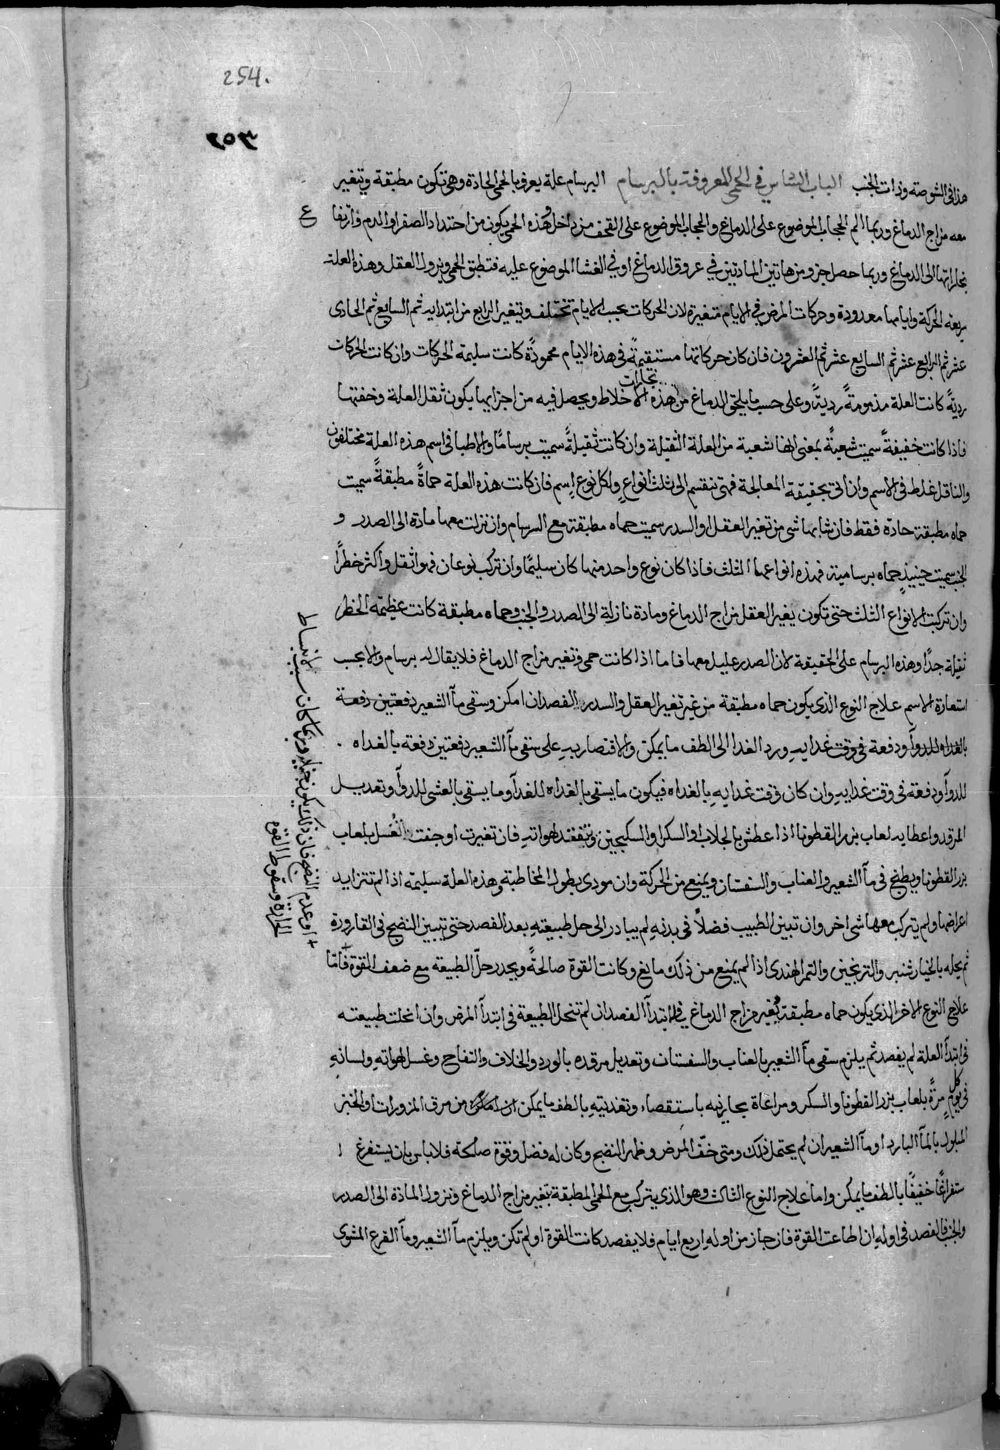 254.
٣٥٢
هذا في الشوصة وذات الجنب الباب السادس في الحمى المعروفة بالبرسام البرسام علة يعرف بالحمى الحادة وهي تكون مطبقة ويتغير
معه مزاج الدماغ وربما الم الحجاب الموضوع على الدماغ والحجاب الموضوع على القحف من داخل وهذه الحمى يكون من احتداد الصفرا والدم وارتفا ع
بخاراتها الى الدماغ وربما حصل جزو من هاتين المادتين في عروق الدماغ او في الغشا الموضوع عليه فتطبق الحمى ويزول العقل وهذه العلة
سريعة الحركة وايامها معدودة وحركات المرض في الايام متغيرة لان الحركات بحسب الايام تختلف ويتغير الرابع من ابتدايه ثم السابع ثم الحادى
عشر ثم الرابع عشر ثم السابع عشر ثم العشرون فان كان حركاتها مستقيمة في هذه الايام محمودة كانت سليمة الحركات وان كانت الحركات
رديةً كانت العلة مذمومةً رديةً وعلى حسب ما يلحق الدماغ من بخارات هذه الاخلاط ويحصل فيه من اجزايها يكون ثقل العلة وخفتها
فاذا كانت خفيفةً سميت شعبةً بمعنى انها شعبة من العلة الثقيلة وان كانت ثقيلةً سميت برسامًا والاطبا في اسم هذه العلة مختلفون
والناقل غلط في الاسم وان اتى بحقيقة المعالجة فهى تنقسم الى ثلث انواع ولكل نوع اسم فان كانت هذه العلة حماةً مطبقةً سميت
حماه مطبقة حادة فقط فان شابها شى من تغير العقل او السدر سميت حماه مطبقة مع السرسام وان نزلت معها مادة الى الصدر و
الجنب سميت حينيذٍ حماه برسامية فهذه انواعها الثلث فاذا كان نوع واحد منها كان سليمًا وان تركب نوعان فهو اثقل واكثر خطراً
وان تركبت الانواع الثلث حتى تكون يغير العقل مزاج الدماغ ومادة نازلة الى الصدر والجنب وحماه مطبقة كانت عظيمة الخطر
ثقيلة جدًا وهذه البرسام على الحقيقة لان الصدر عليل معها فاما اذا كانت حمى وتغير مزاج الدماغ فلا يقال له برسام والا بحسب
استعارة الاسم علاج النوع الذى يكون حماه مطبقة من غير تغير العقل والسدر الفصد ان امكن وسقى مآ الشعير دفعتين دفعة
بالغداه للدوآ ودفعة في وقت غدايه ورد الغدا الى الطف ما يمكن والاقتصار به على سقى مآ الشعير دفعتين دفعة بالغداه .
للدوآ ودفعة في وقت غدايه وان كان وقت غدايه بالغداه فيكون ما يسقى بالغداه للغدآ وما يسقى بالعشى للدوآ وتعديل
المرقد واعطايه لعاب بزر القطونا اذا عطش بالجلاب او السكر او السكنجبين وتتفقد لهواته فان تغيرت او جفت الغسل بلعاب
بزر القطونا ويطبخ في مآ الشعير والعناب والسفستان ويمنع من الحركة وان مودى بطول المخاطبة وهذه العلة سليمة اذا لم تتزايد
اعراضها ولم يتركب معها شى اخر وان تبين للطبيب فضلاً في بدنه لم يبادر الى حل طبيعته بعد الفصد حتى يتبين النضج في القارورة
ثم يحله بالخيار شنبر والترنجبين والتمر الهندى اذا لم يمنع من ذلك مانع وكانت القوة صالحةً ويحدر حل الطبيعة مع ضعف القوة فامّا
علاج النوع الاخر الذى يكون حماه مطبقة بتغير مزاج الدماغ في ابتدآ الفصد ان لم تنحل الطبيعة في ابتدآ المرض وان انحلت طبيعته
في ابتدآ العلة لم يفصد ثم يلزم سقى مآ الشعير بالعناب والسفستان وتعديل مرقده بالورد والخلاف والتفاح وغسل لهواته ولسانه
في كل يوم مرّةً بلعاب بزر القطونا والسكر ومراعاة بحارينه باستقصاء وتغذيته بالطف ما يمكن من مرق المزورات او الخبز
المبلول بالمآ البارد او مآ الشعير ان لم يحتمل ذلك ومتى خفّ المرض وظهر النضج وكان له فضل وقوة صالحة فلا باس بان يستفرغ ا
ستفراغًا خفيفًا بالطف ما يمكن واما علاج النوع الثالث وهو الذى يتركب مع الحمى المطبقة بتغير مزاج الدماغ ونزول المادة الى الصدر
والجنب فالفصد في اوله ان اطاعت القوة فان جاز من اوله اربع ايام فلا يفصد كانت القوة او لم تكن ويلزم مآ الشعير ومآ القرع المشوى
+ او عدم النضج فان ذلك يكون وربما كان سببًا لانبساط
الحرارة وسقوط القوة